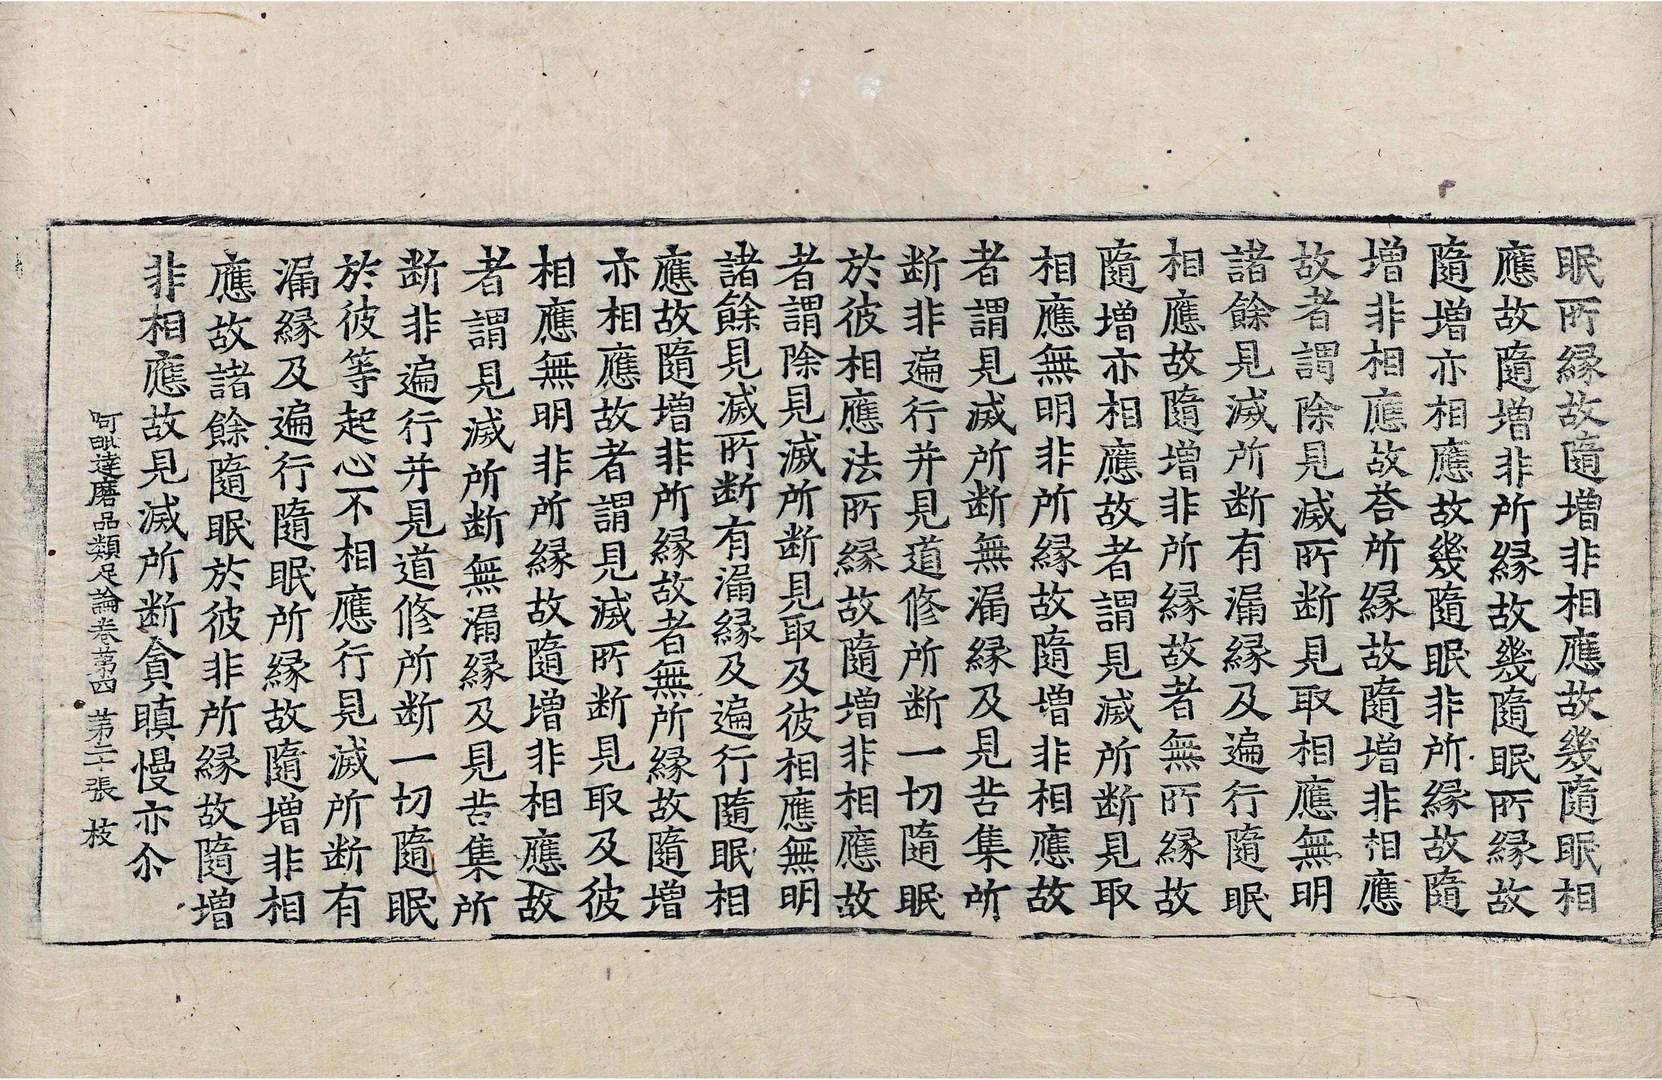 眠所緣故隨增非相應故幾隨眠相
應故隨增非所緣故幾隨眠所緣故
隨增亦相應故幾隨眠非所緣故隨
增非相應故荅所緣故隨增非相應
故者謂除見滅所断見取相應無明
諸餘見滅所断有漏緣及遍行隨眠
相應故隨增非所緣故者無所緣故
隨增亦相應故者謂見滅所断見取
相應無明非所緣故隨增非相應故
者謂見滅所断無漏緣及見苦集所
断非遍行并見道修所断一切隨眠
於彼相應法所緣故隨增非相應故
者謂除見滅所断見取及彼相應無明
諸餘見滅所断有漏緣及遍行隨眠相
應故隨增非所緣故者無所緣故隨增
亦相應故者謂見滅所断見取及彼
相應無明非所緣故隨增非相應故
者謂見滅所断無漏緣及見苦集所
断非遍行并見道修所断一切隨眠
於彼等起心不相應行見滅所断有
漏緣及遍行隨眠所緣故隨增非相
應故諸餘隨眠於彼非所緣故隨增
非相應故見滅所断貪瞋慢亦尒
阿毗達磨品類足論卷第四 第二十張 枝